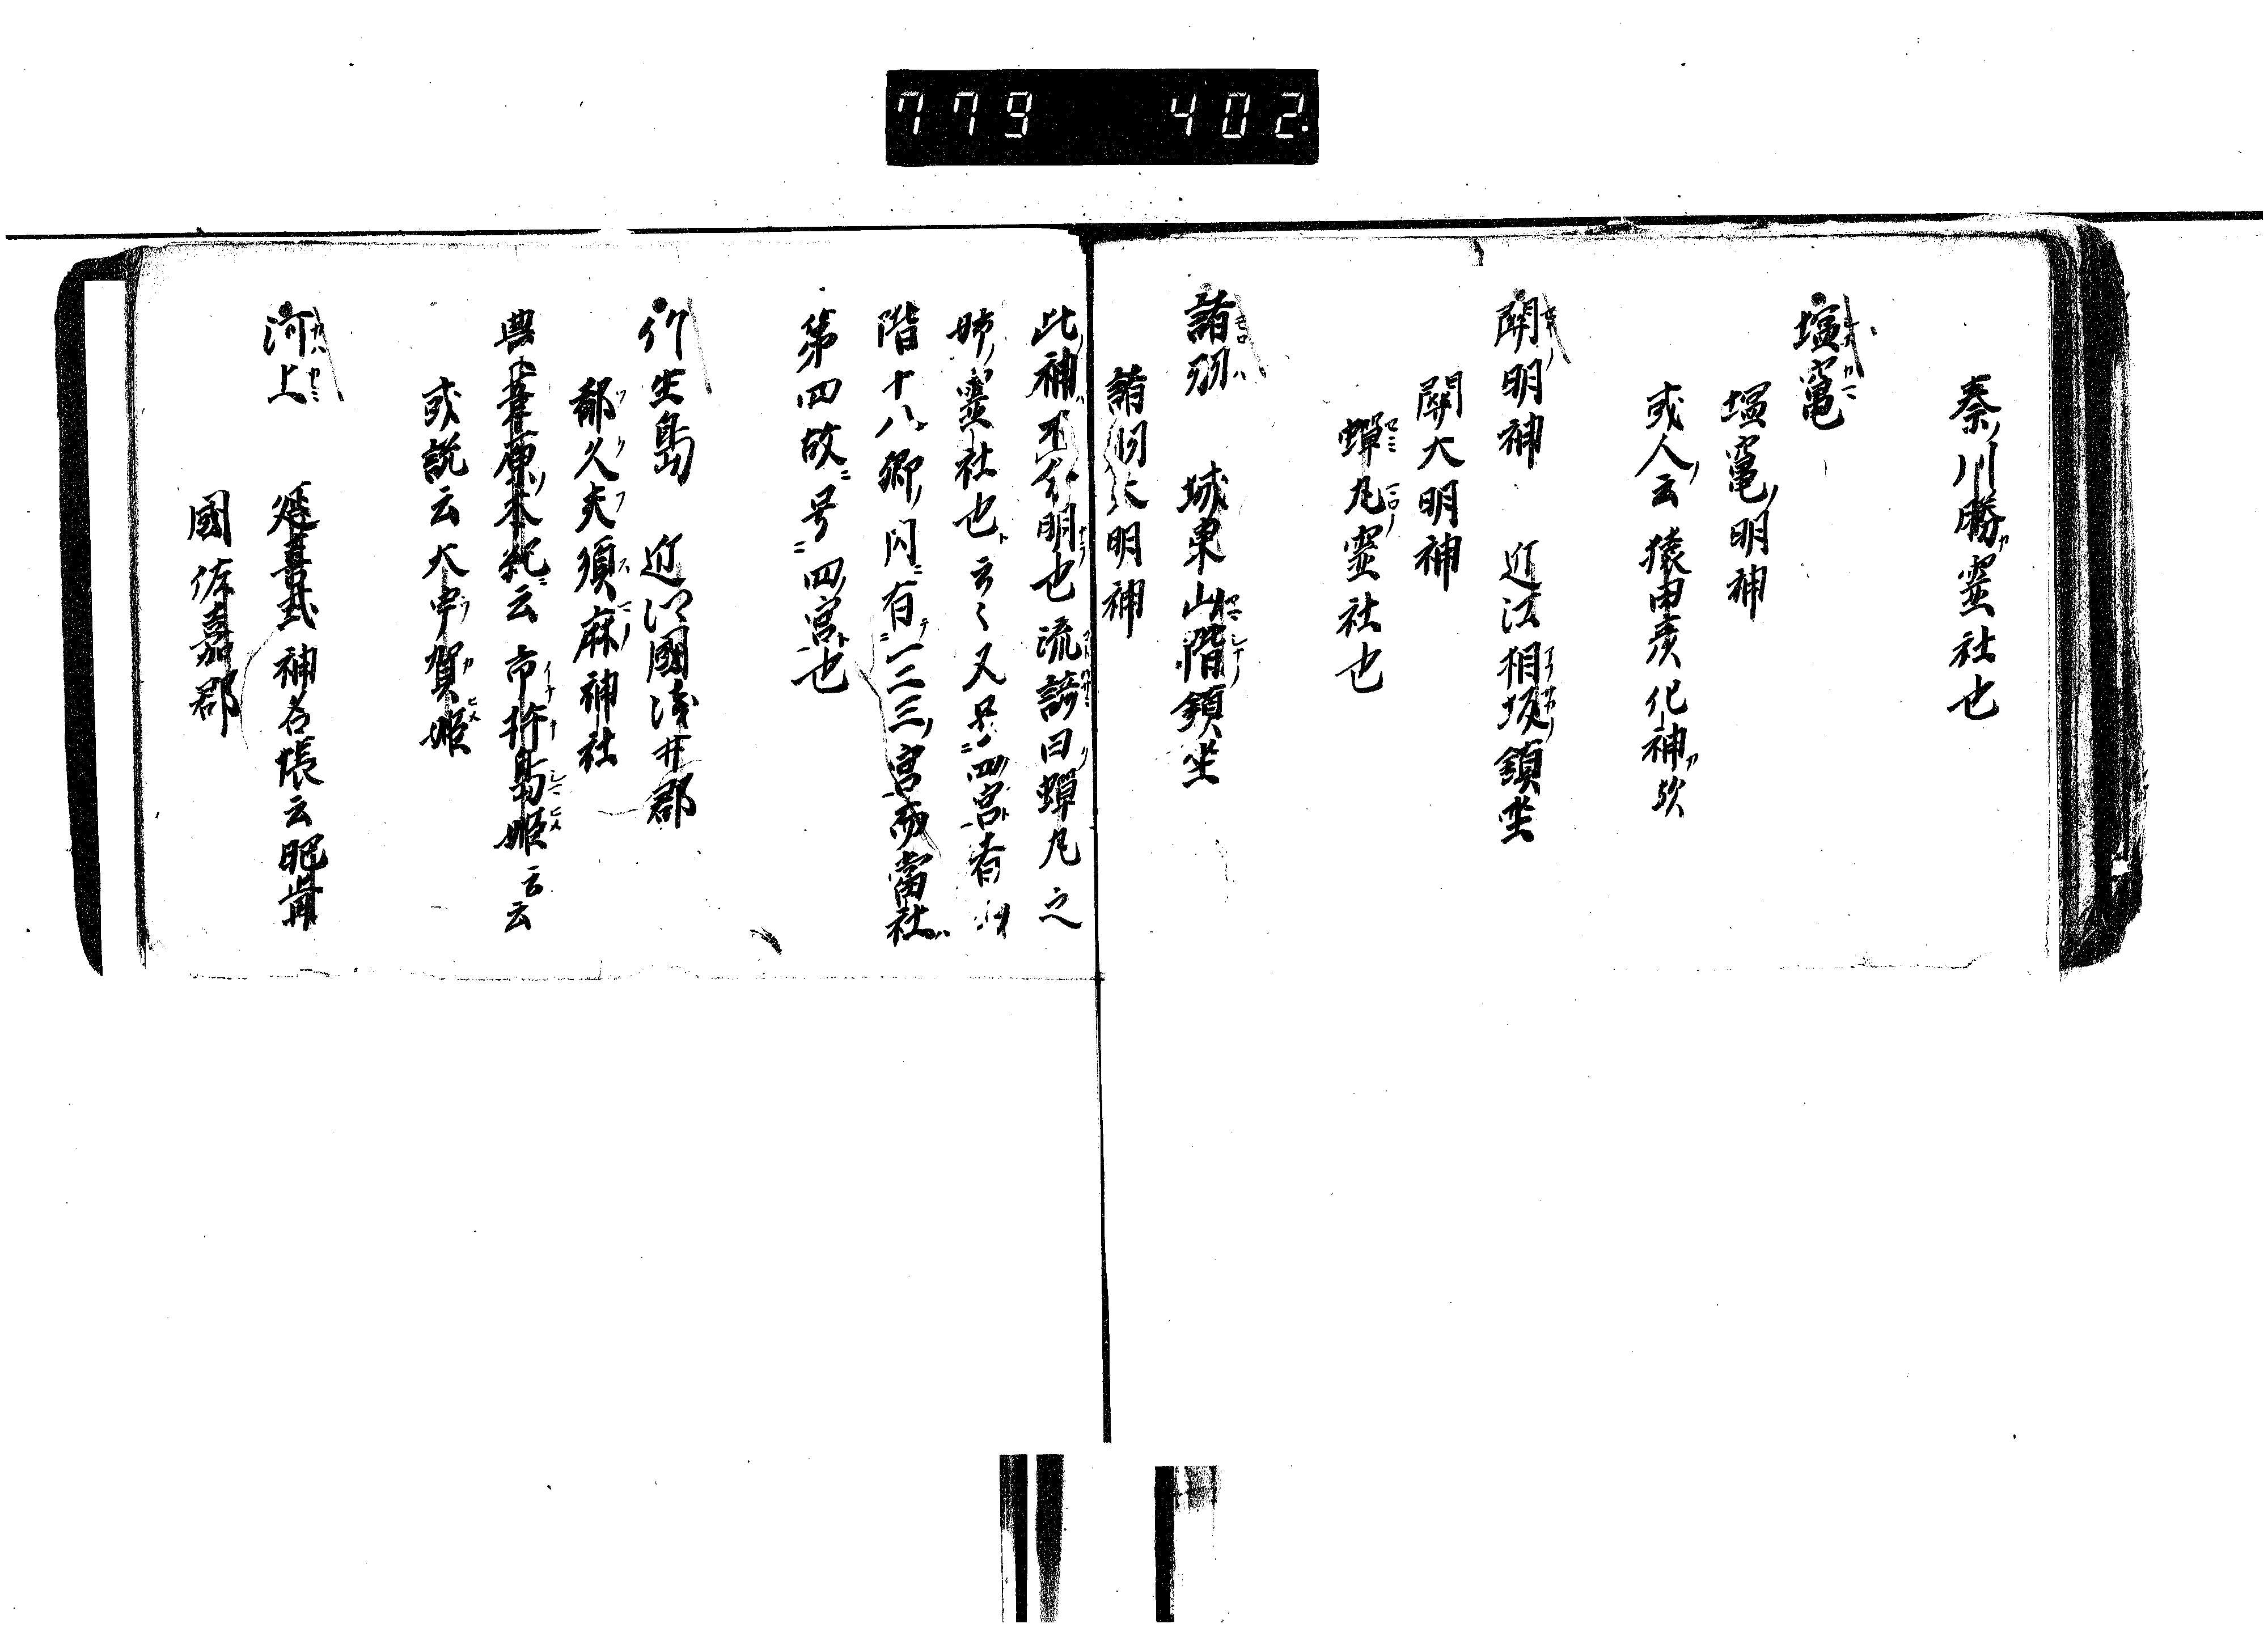 779 402
秦川勝霊社也
塩竈
塩竈明神
或人云猿田彦化神欤
関明神 近江相坂鎮坐
關大明神
蟬丸霊社也
諸羽 城東山階鎮坐
諸羽大明神
此神不分明也流諺曰蟬丸之
姉霊社也云〻又号四宮者
階十八郷内有一二三宮而當社
第四故号四宮也
竹生島 近江國淺井郡
都久夫須麻神社
豊葦原本紀云市杵島姫云云
或説云大中賀姫
河上 延喜式神名帳云肥前
國佐嘉郡